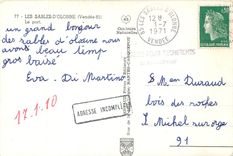 17 - LES SABLES-D'OLONNE (Vendée-85)
Le port
un grand bonjour
des sables d'olonne nous
avons beau temp
gros baisé
Eva. Di Martino
17.1.10
ADRESSE INCOMPLETE
LES SABLES D'OLONNE
12H
7-7
1971
VENDEE
S M en Duraud
bois des roches
St Michel sur orge
91